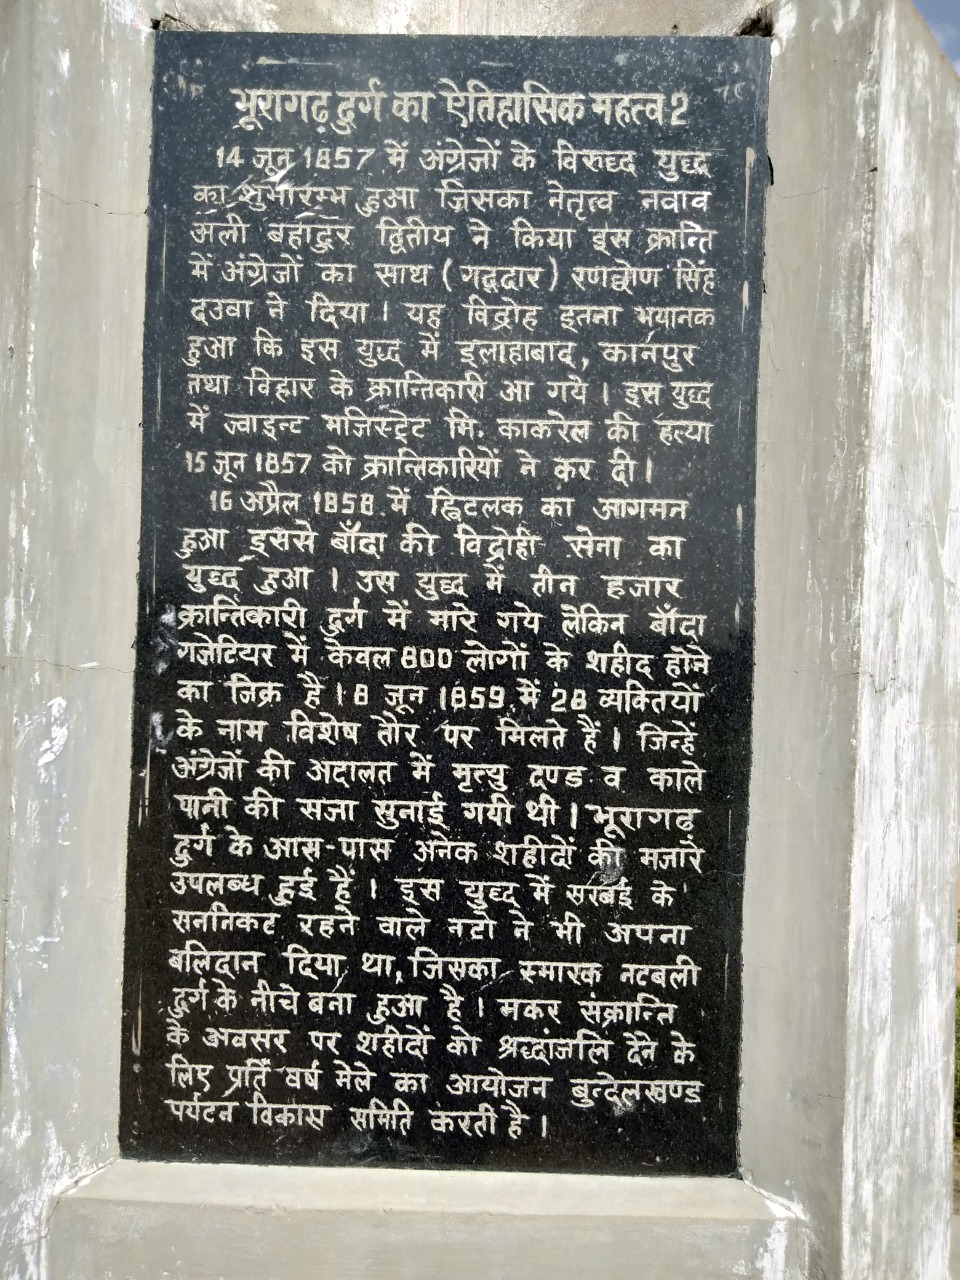 भूरागढ़ दुर्ग का ऐतिहासिक महत्व 2
14 जून 1857 में अंग्रेजों के विरुध्द युध्द
का शुभारम्भ हुआ जिसका नेतृत्व नवाव
अली बहादुर द्वितीय ने किया इस क्रान्ति
में अंग्रेजों का साथ (गद्दार) रणछोण सिंह
दउवा ने दिया । यह विद्रोह इतना भयानक
हुआ कि इस युध्द में इलाहाबाद, कानपुर
तथा विहार के क्रान्तिकारी आ गये । इस युध्द
में ज्वाइन्ट मजिस्ट्रेट मि. काकरेल की हत्या
15 जून 1857 को क्रान्तिकारियों ने कर दी ।
16 अप्रैल 1858 में ह्विटलक का आगमन
हुआ इससे बाँदा की विद्रोही सेना का
युध्द हुआ । उस युध्द में तीन हजार
क्रान्तिकारी दुर्ग में मारे गये लेकिन बाँदा
गजेटियर में केवल 800 लोगों के शहीद होने
का जिक्र है । 8 जून 1859 में 28 व्यक्तियों
के नाम विशेष तौर पर मिलते हैं । जिन्हें
अंग्रेजों की अदालत में मृत्यु दण्ड व काले
पानी की सजा सुनाई गयी थी । भूरागढ़
दुर्ग के आस-पास अनेक शहीदों की मजारें
उपलब्ध हुई हैं । इस युध्द में सरबई के
सननिकट रहने वाले नटों ने भी अपना
बलिदान दिया था, जिसका स्मारक नटबली
दुर्ग के नीचे बना हुआ है । मकर संक्रान्ति
के अवसर पर शहीदों को श्रद्धांजलि देने के
लिए प्रति वर्ष मेले का आयोजन बुन्देलखण्ड
पर्यटन विकास समिति करती है ।